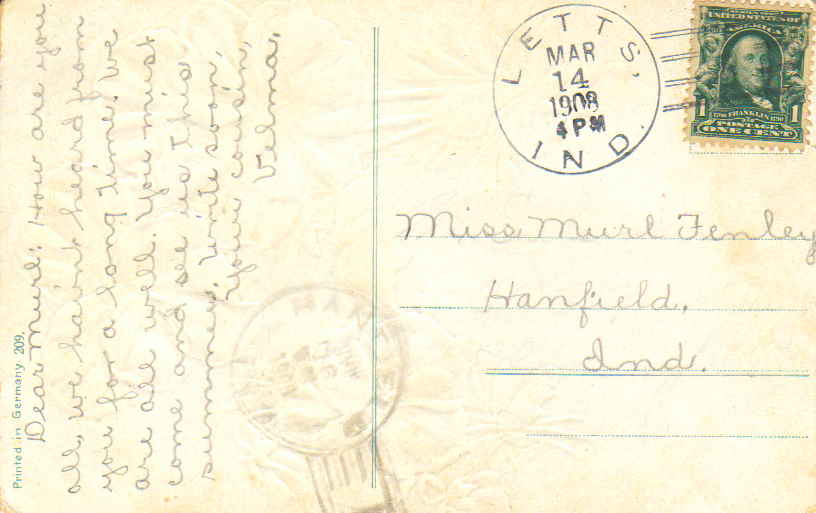 Dear Murl: How are you
all, we havn't heard from
you for a long time. We
are all well. You must
come and see us this
summer. Write soon,
Your cousin,
Velma.
Printed in Germany 209.
LETTS, IND.
MAR
14
1908
4 PM
UNITED STATES OF
AMERICA
1 1
FRANKLIN
POSTAGE
ONE CENT
Miss Murl Fenley
Hanfield,
Ind.
HANF